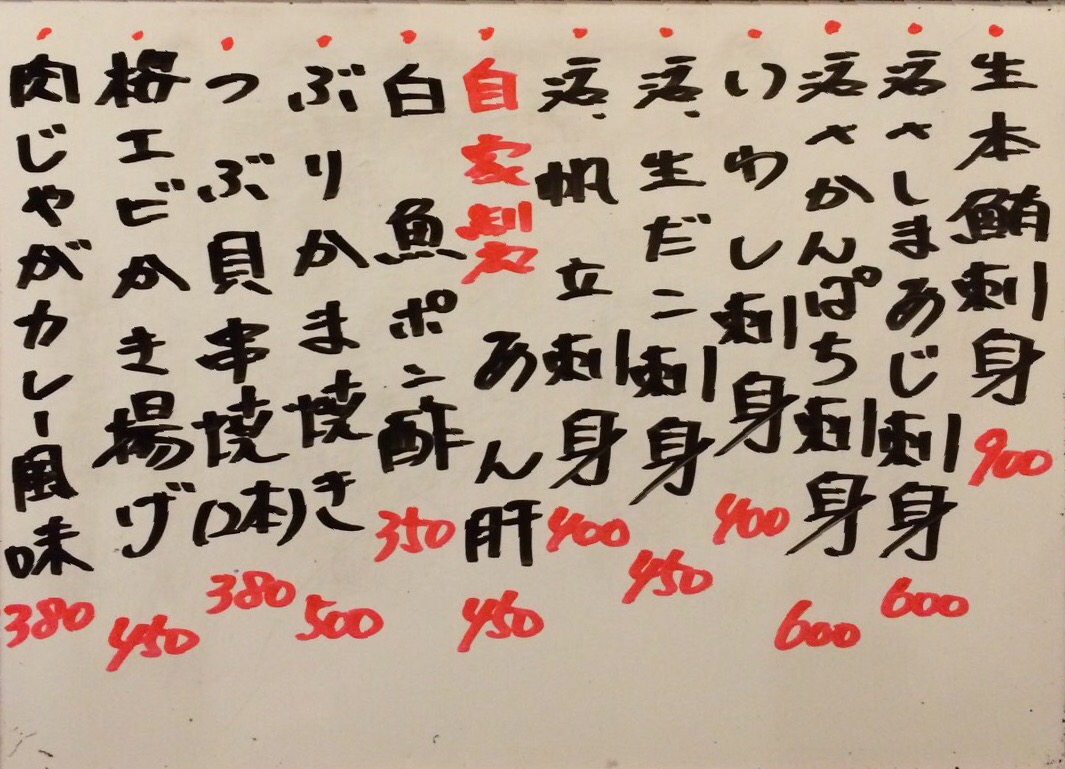 生本鮪刺身 900
活〆しまあじ刺身 600
活〆かんぱち刺身 600
いわし刺身 400
活、生だこ刺身 450
活、帆立刺身 400
自家製 あん肝 450
白魚ポン酢 350
ぶりかま焼き 500
つぶ貝串焼(2本) 380
桜エビかき揚げ 450
肉じゃがカレー風味 380